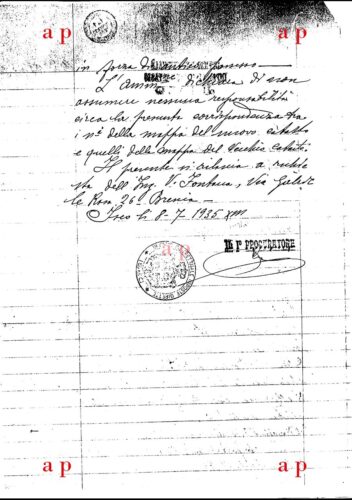 a p
a p
in forza di
L'Amm. dichiara di non
assumere nessuna responsabilità
circa la presunta corrispondenza tra
i nⁱ della mappa del nuovo catasto
e quelli della mappa del Vecchio catasto.
Il presente si rilascia a richie
sta dell'Ing. V. Fontana, Via
26 Brescia -
Iseo li 8-7-1935 XIII
a p
IL 1° PROCURATORE
a p
a p